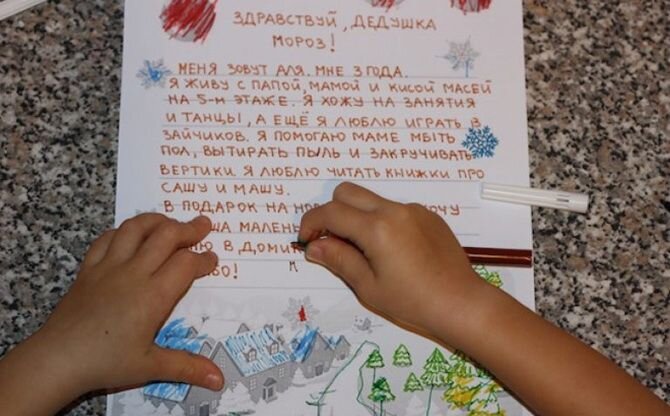 ЗДРАВСТВУЙ, ДЕДУШКА
МОРОЗ!
МЕНЯ ЗОВУТ АЛЯ. МНЕ 3 ГОДА.
Я ЖИВУ С ПАПОЙ, МАМОЙ И КИСОЙ МАСЕЙ
НА 5-М ЭТАЖЕ. Я ХОЖУ НА ЗАНЯТИЯ
И ТАНЦЫ, А ЕЩЁ Я ЛЮБЛЮ ИГРАТЬ В
ЗАЙЧИКОВ. Я ПОМОГАЮ МАМЕ МЫТЬ
ПОЛ, ВЫТИРАТЬ ПЫЛЬ И ЗАКРУЧИВАТЬ
ВЕРТИКИ. Я ЛЮБЛЮ ЧИТАТЬ КНИЖКИ ПРО
САШУ И МАШУ.
В ПОДАРОК НА
В